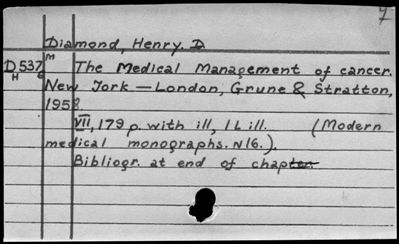 7
Diamond, Henry. D.
D537 m The Medical Management of cancer.
H 6 New York — London, Grune & Stratton,
1958.
VII, 179 p. with ill, 1 L ill. (Modern
medical monographs. N16.).
Bibliogr. at end of chapter.